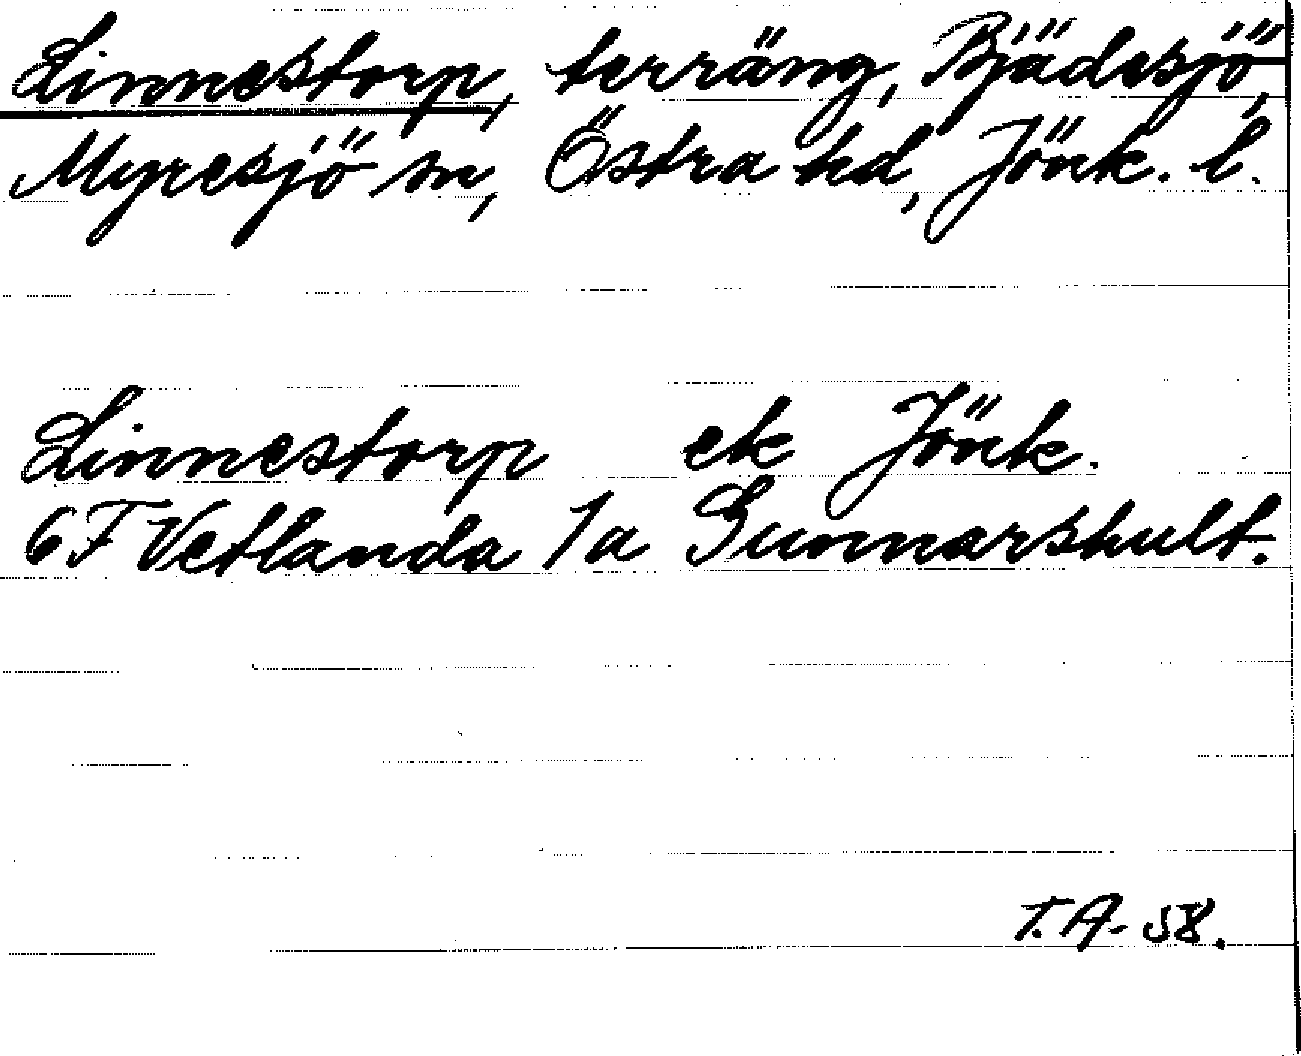 Linnestorp, terräng, Bjädesjö,
Myresjö sn, Östra hd, Jönk. l.
Linnestorp ek Jönk.
6F Vetlanda 1a Gunnarshult.
T.A. 58.